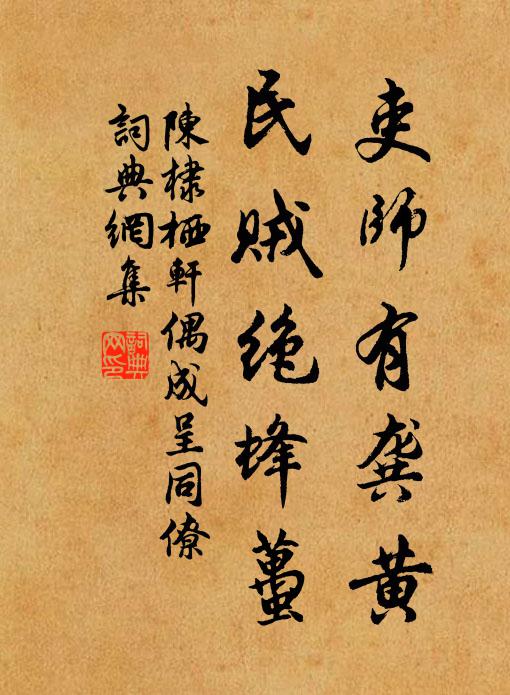 吏師有龔黃
民賊絶蜂蠆
陳棣栖軒偶成呈同僚
詞典網集
詞典網印